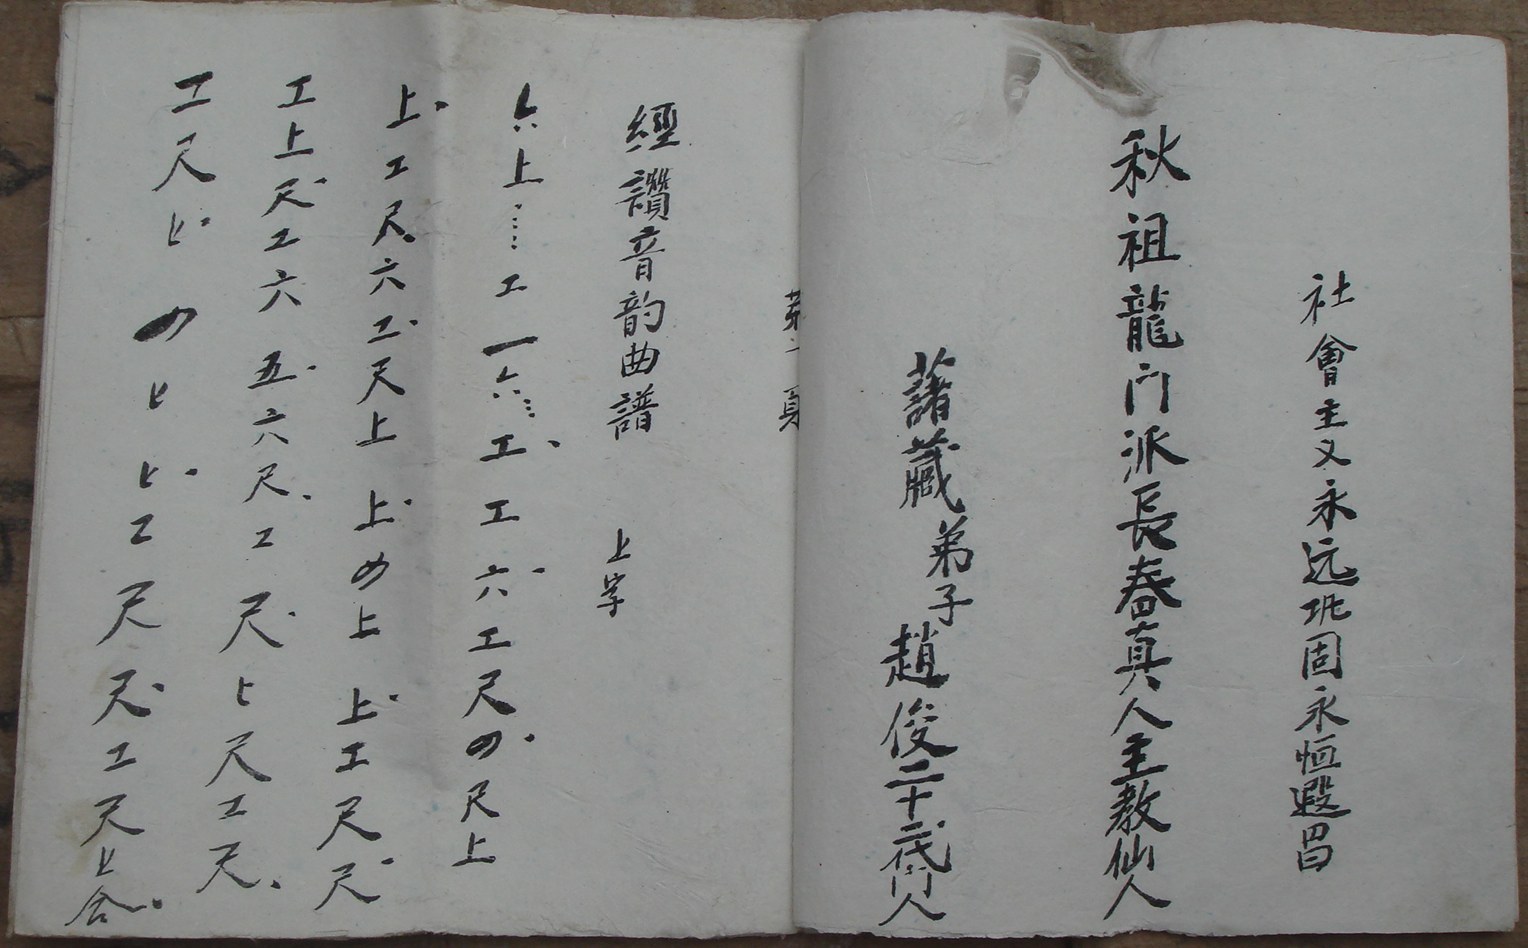 社會主义永远巩固永恒遐昌
秋祖龍门派長春真人主教仙人
藷藏弟子趙俊二十二代门人
第一頁
經讚音韵曲譜 上字
六上……工一六…工.工六.工尺の.尺上
上.工尺.六工.尺上 上.の上 上.工尺尺.
工上尺.工六 五.六尺.工尺.上尺工尺.
工尺上.の上上.工尺尺.工尺上合.